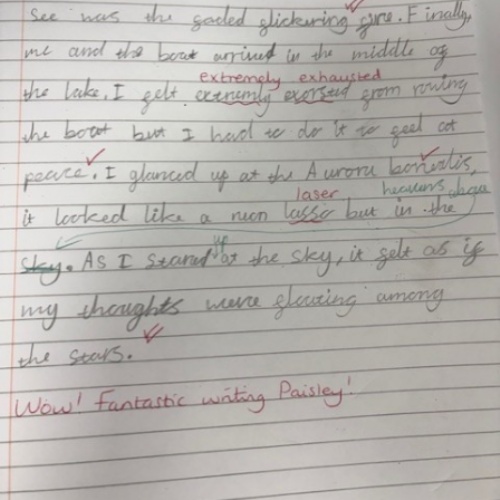 see was the faded flickering fire. Finally,
me and the boat arrived in the middle of
extremely exhausted
the lake. I felt extremly exorsted from rowing
the boat but I had to do it to feel at
peace. I glanced up at the Aurora borialis,
laser heavens
it looked like a neon lasso but in the
sky. As I stared up at the sky, it felt as if
my thoughts were floating among
the stars.
Wow! Fantastic writing Paisley!